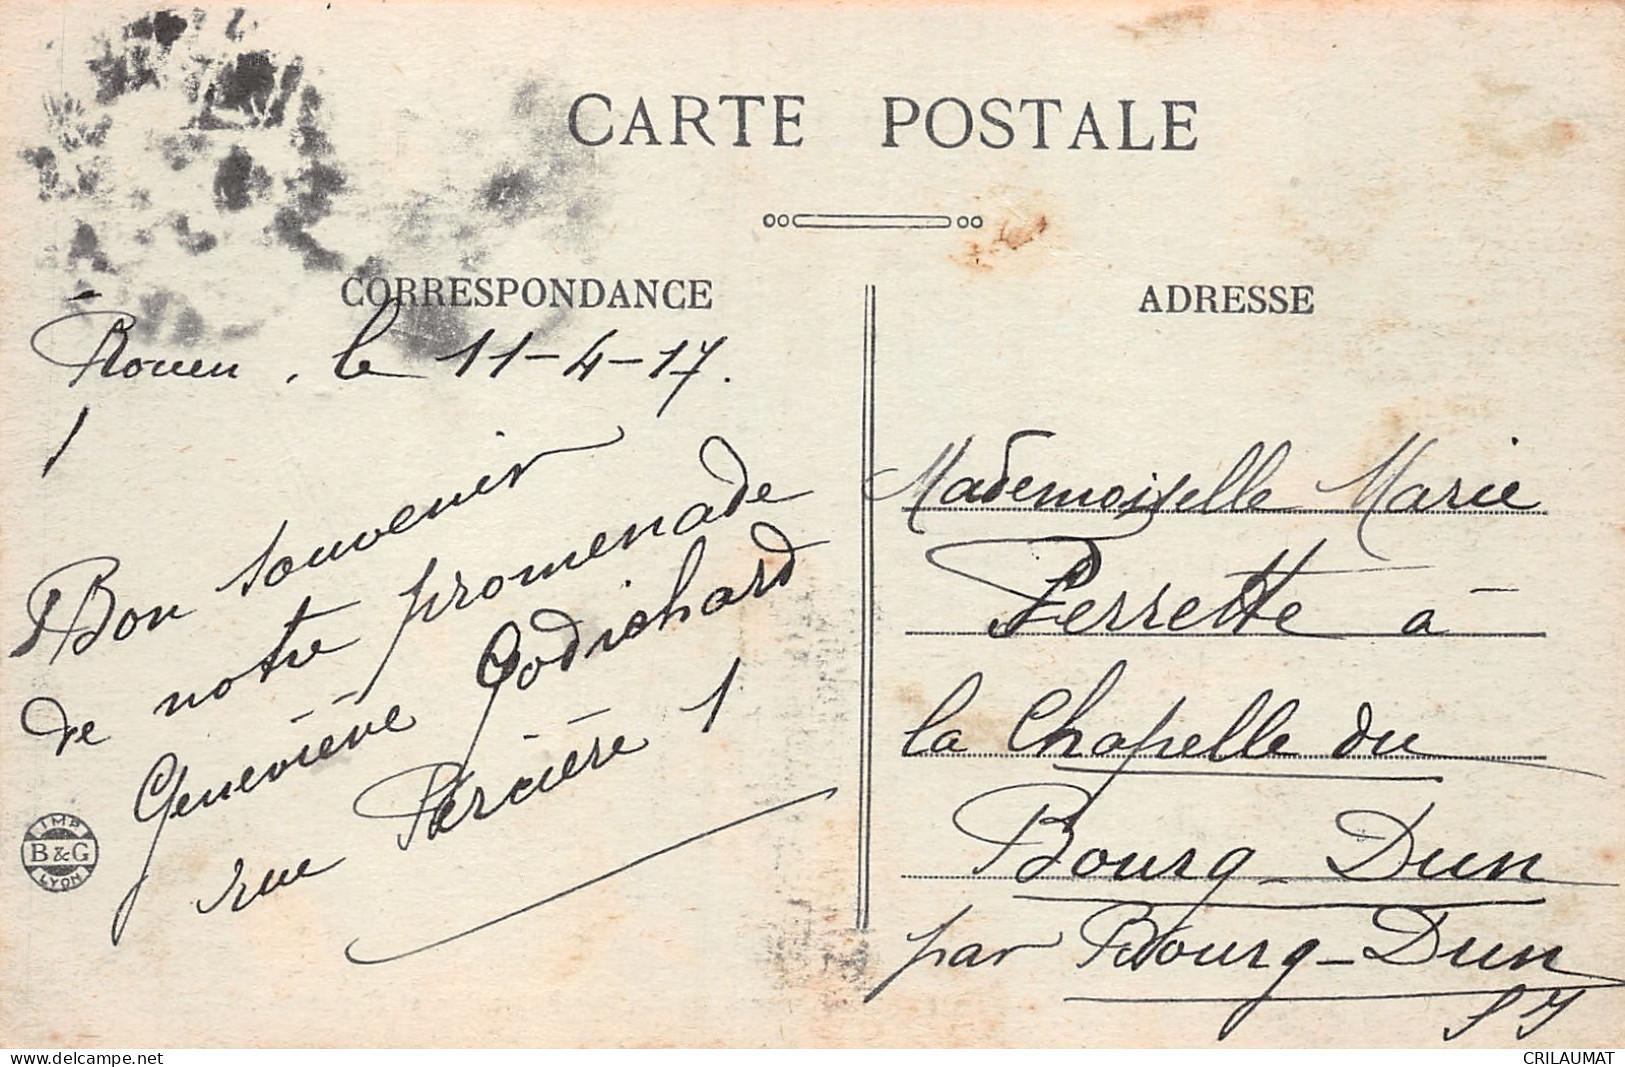 CARTE POSTALE
CORRESPONDANCE
ADRESSE
Rouen, le 11-4-17.
Bon souvenir
de notre promenade
Geneviève Godrichard
rue Percière 1
Mademoiselle Marie
Perrette à
la Chapelle du
Bourg-Dun
par Bourg-Dun
S I
IMP
B & G
LYON
www.delcampe.net
CRILAUMAT